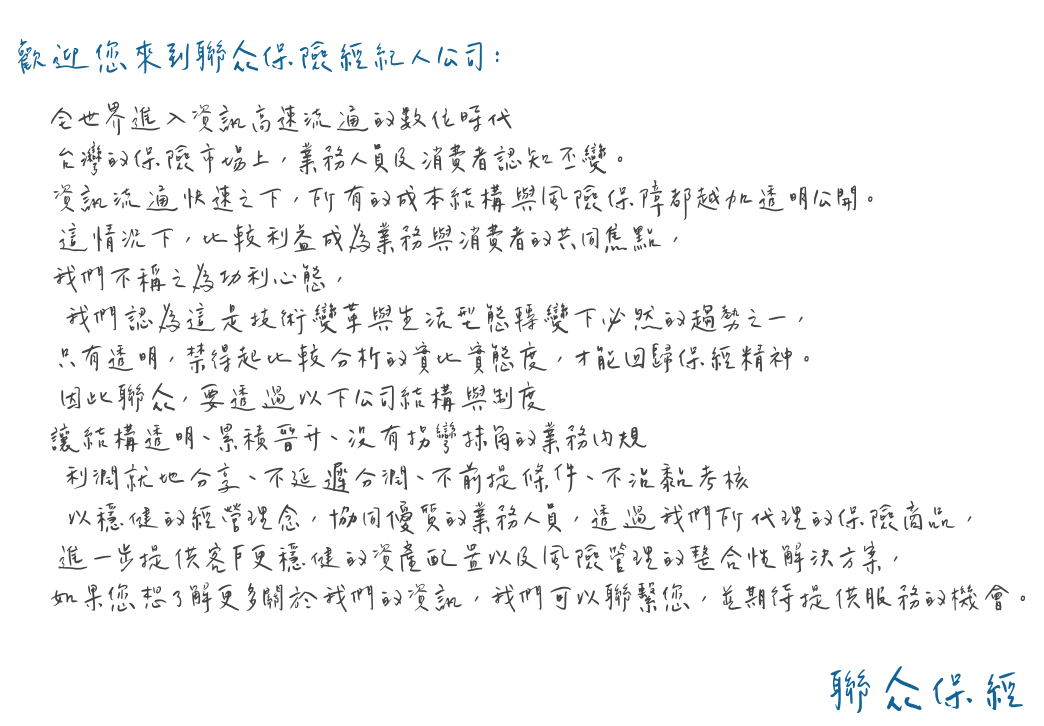 歡迎您來到聯众保險經紀人公司：
全世界進入資訊高速流通的數位時代
台灣的保險市場上，業務人員及消費者認知丕變。
資訊流通快速之下，所有的成本結構與風險保障都越加透明公開。
這情況下，比較利益成為業務與消費者的共同焦點，
我們不稱之為功利心態，
我們認為這是技術變革與生活型態轉變下必然的趨勢之一，
只有透明，禁得起比較分析的實比實態度，才能回歸保經精神。
因此聯众，要透過以下公司結構與制度
讓結構透明、累積晉升、沒有拐彎抹角的業務內規
利潤就地分享、不延遲分潤、不前提條件、不沾黏考核
以穩健的經營理念，協同優質的業務人員，透過我們所代理的保險商品，
進一步提供客戶更穩健的資產配置以及風險管理的整合性解決方案，
如果您想了解更多關於我們的資訊，我們可以聯繫您，並期待提供服務的機會。
聯众保經